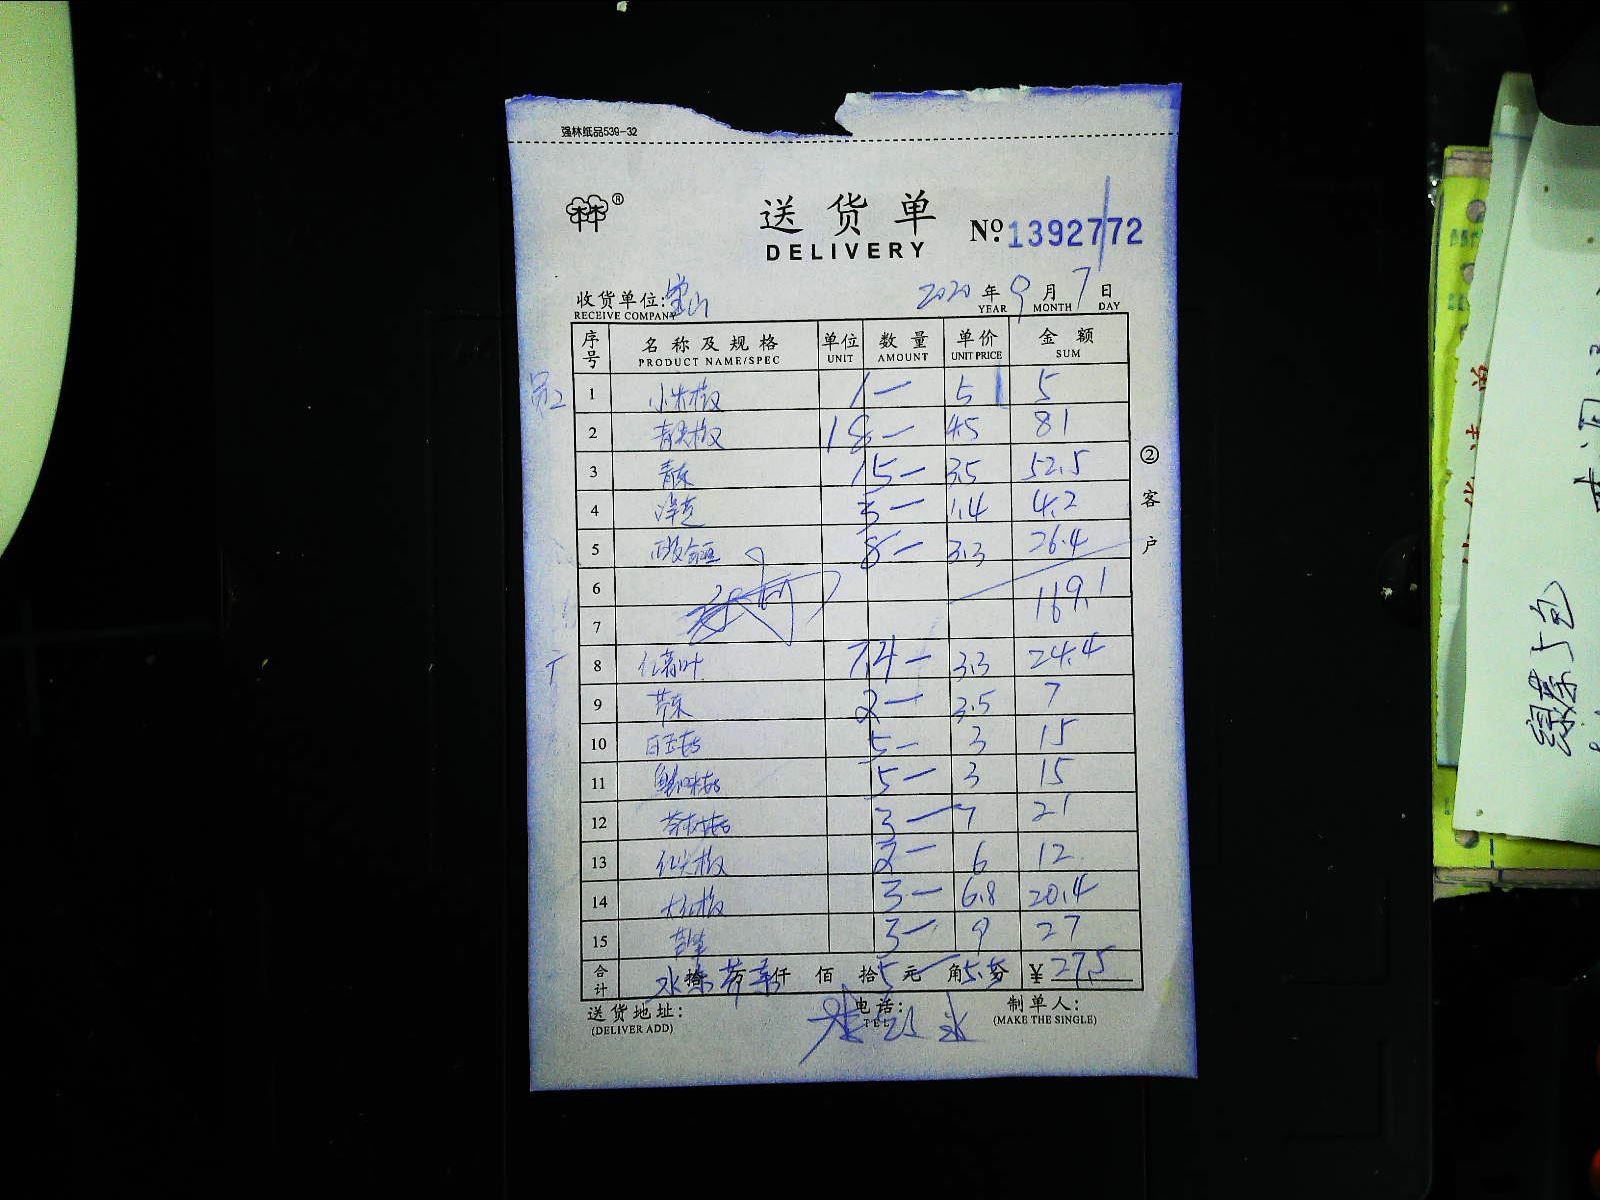 强林纸品539-32
送货单
DELIVERY
Nº 1392772
收货单位: 宝山
RECEIVE COMPANY
2020 年 9 月 7 日
YEAR MONTH DAY
序号 名称及规格 单位 数量 单价 金额
PRODUCT NAME/SPEC UNIT AMOUNT UNIT PRICE SUM
员2
1 小米椒 1— 5 5
2 青尖椒 18— 4.5 81
3 青东 15— 3.5 52.5
4 洋芝 3— 1.4 4.2
5 8— 3.3 26.4
6 169.1
7
8 7.4— 3.3 24.4
9 芥东 2— 3.5 7
10 白玉菇 5— 3 15
11 蟹味菇 5— 3 15
12 茶树菇 3— 7 21
13 红尖椒 2— 6 12
14 大红椒 3— 6.8 20.4
15 3— 9 27
合计 仟 佰 拾 5 元 角 5.5 ¥ 27.5
送货地址:
(DELIVER ADD)
电话:
TEL
制单人:
(MAKE THE SINGLE)
②客户
绿茶5包